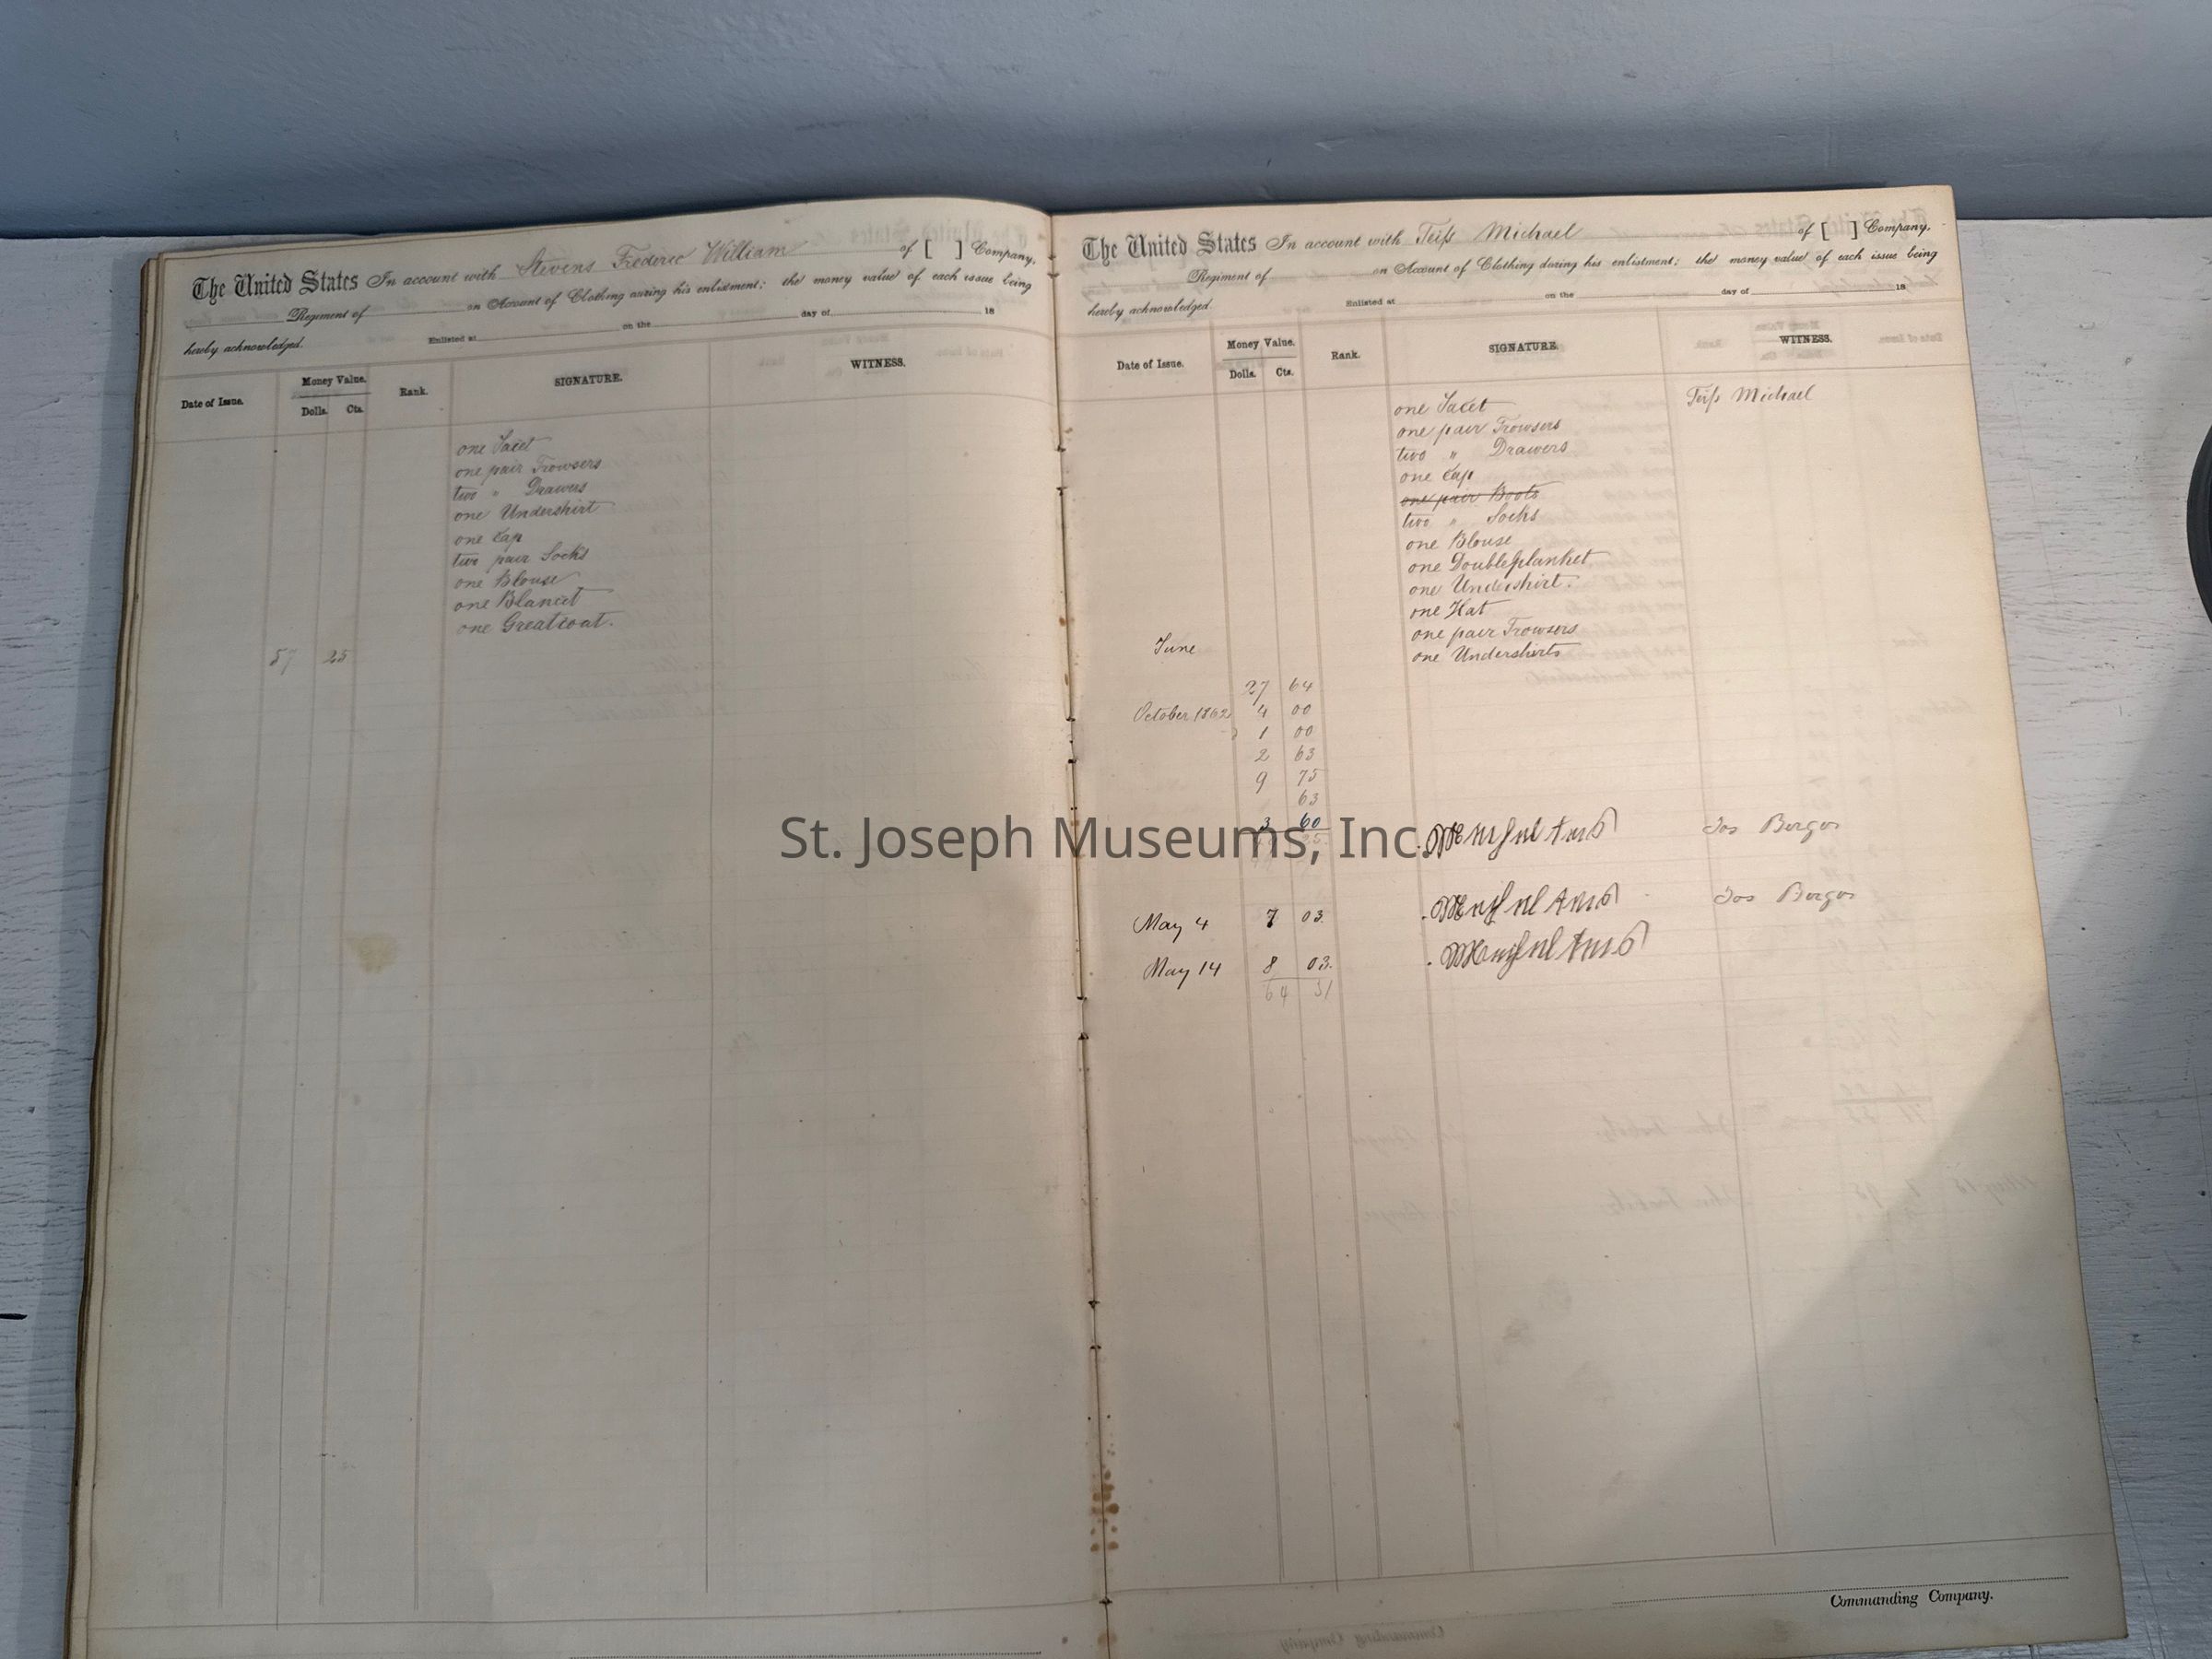 The United States In account with Stevens Frederic William of [ ] Company,
Regiment of on Account of Clothing during his enlistment; the money value of each issue being
hereby acknowledged. Enlisted at on the day of 18
Date of Issue. Money Value. Dolls. Cts. Rank. SIGNATURE. WITNESS.
one Jacet
one pair Trowsers
two " Drawers
one Undershirt
one Cap
two pair Socks
one Blouse
one Blancet
one Greatcoat.
57 25
The United States In account with Teiſs Michael of [ ] Company,
Regiment of on Account of Clothing during his enlistment; the money value of each issue being
hereby acknowledged. Enlisted at on the day of 18
Date of Issue. Money Value. Dolls. Cts. Rank. SIGNATURE. WITNESS.
one Jacet Teiſs Michael
one pair Trowsers
two " Drawers
one Cap
one pair Boots
two " Socks
one Blouse
one Doubleplanket
one Undershirt.
one Hat
one pair Trowsers
June one Undershirts
27 64
October 1862 4 00
1 00
2 63
9 75
63
3 60 Jos Berger
St. Joseph Museums, Inc.
May 4 7 03 Jos Berger
May 14 8 03
64 31
Commanding Company.